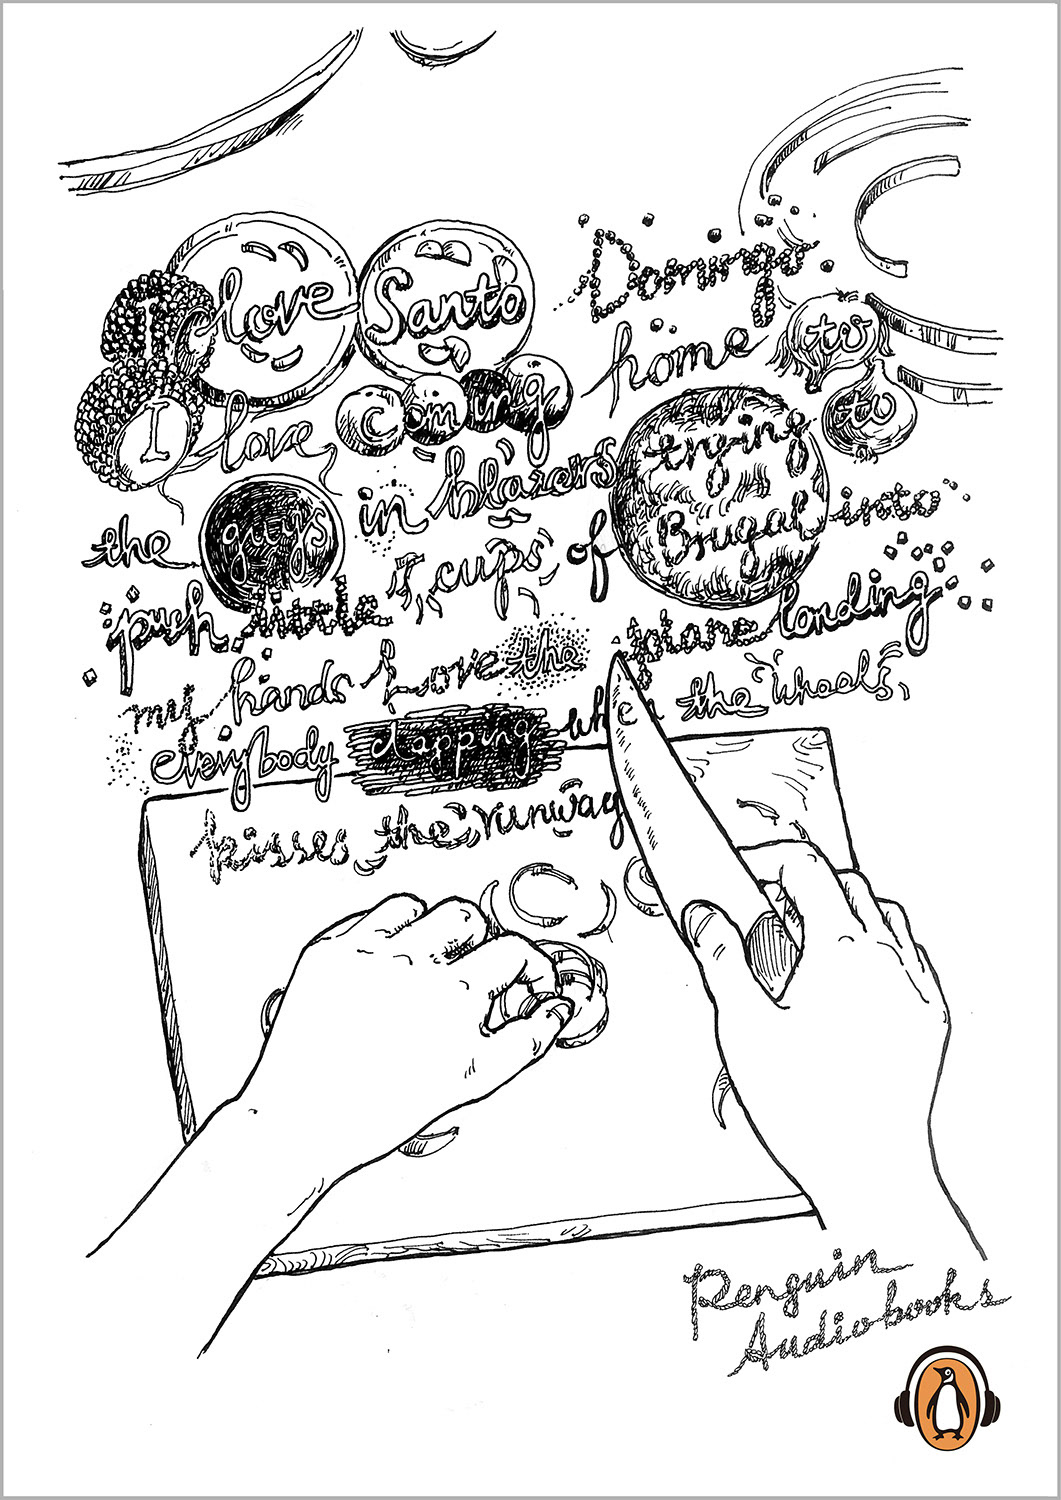 I love Santo Domingo.
I love coming home to
the guys in blazers trying to
push little cups of Brugal into
my hands I love the plane landing
everybody clapping when the wheels
kisses the runway
Penguin
Audiobooks